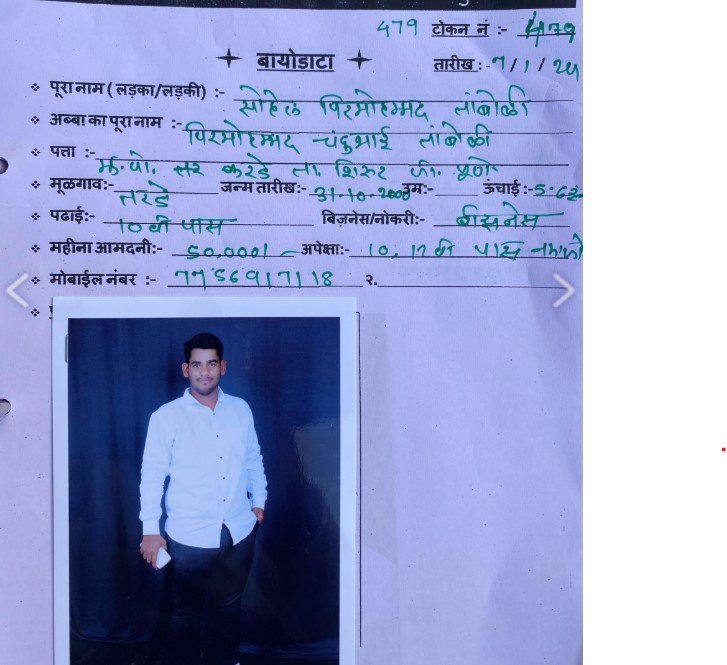 479 टोकन नं :- 479
बायोडाटा
तारीख :- 7/1/24
पूरा नाम ( लड़का/लड़की) :- सोहेल पिरमोहम्मद तांबोळी
अब्बा का पूरा नाम :- पिरमोहम्मद चंदुभाई तांबोळी
पत्ता :- ता. शिरुर जी. पुणे
मूळगाव:- जन्म तारीख:- 31-10-2000 उम्र:- ऊंचाई :-
पढाई:- 10 वी पास बिज़नेस/नोकरी:- बीझनेस
महीना आमदनी:- 50,000/- अपेक्षा:- 10, 12 वी पास
मोबाईल नंबर :- 7756917118 २.